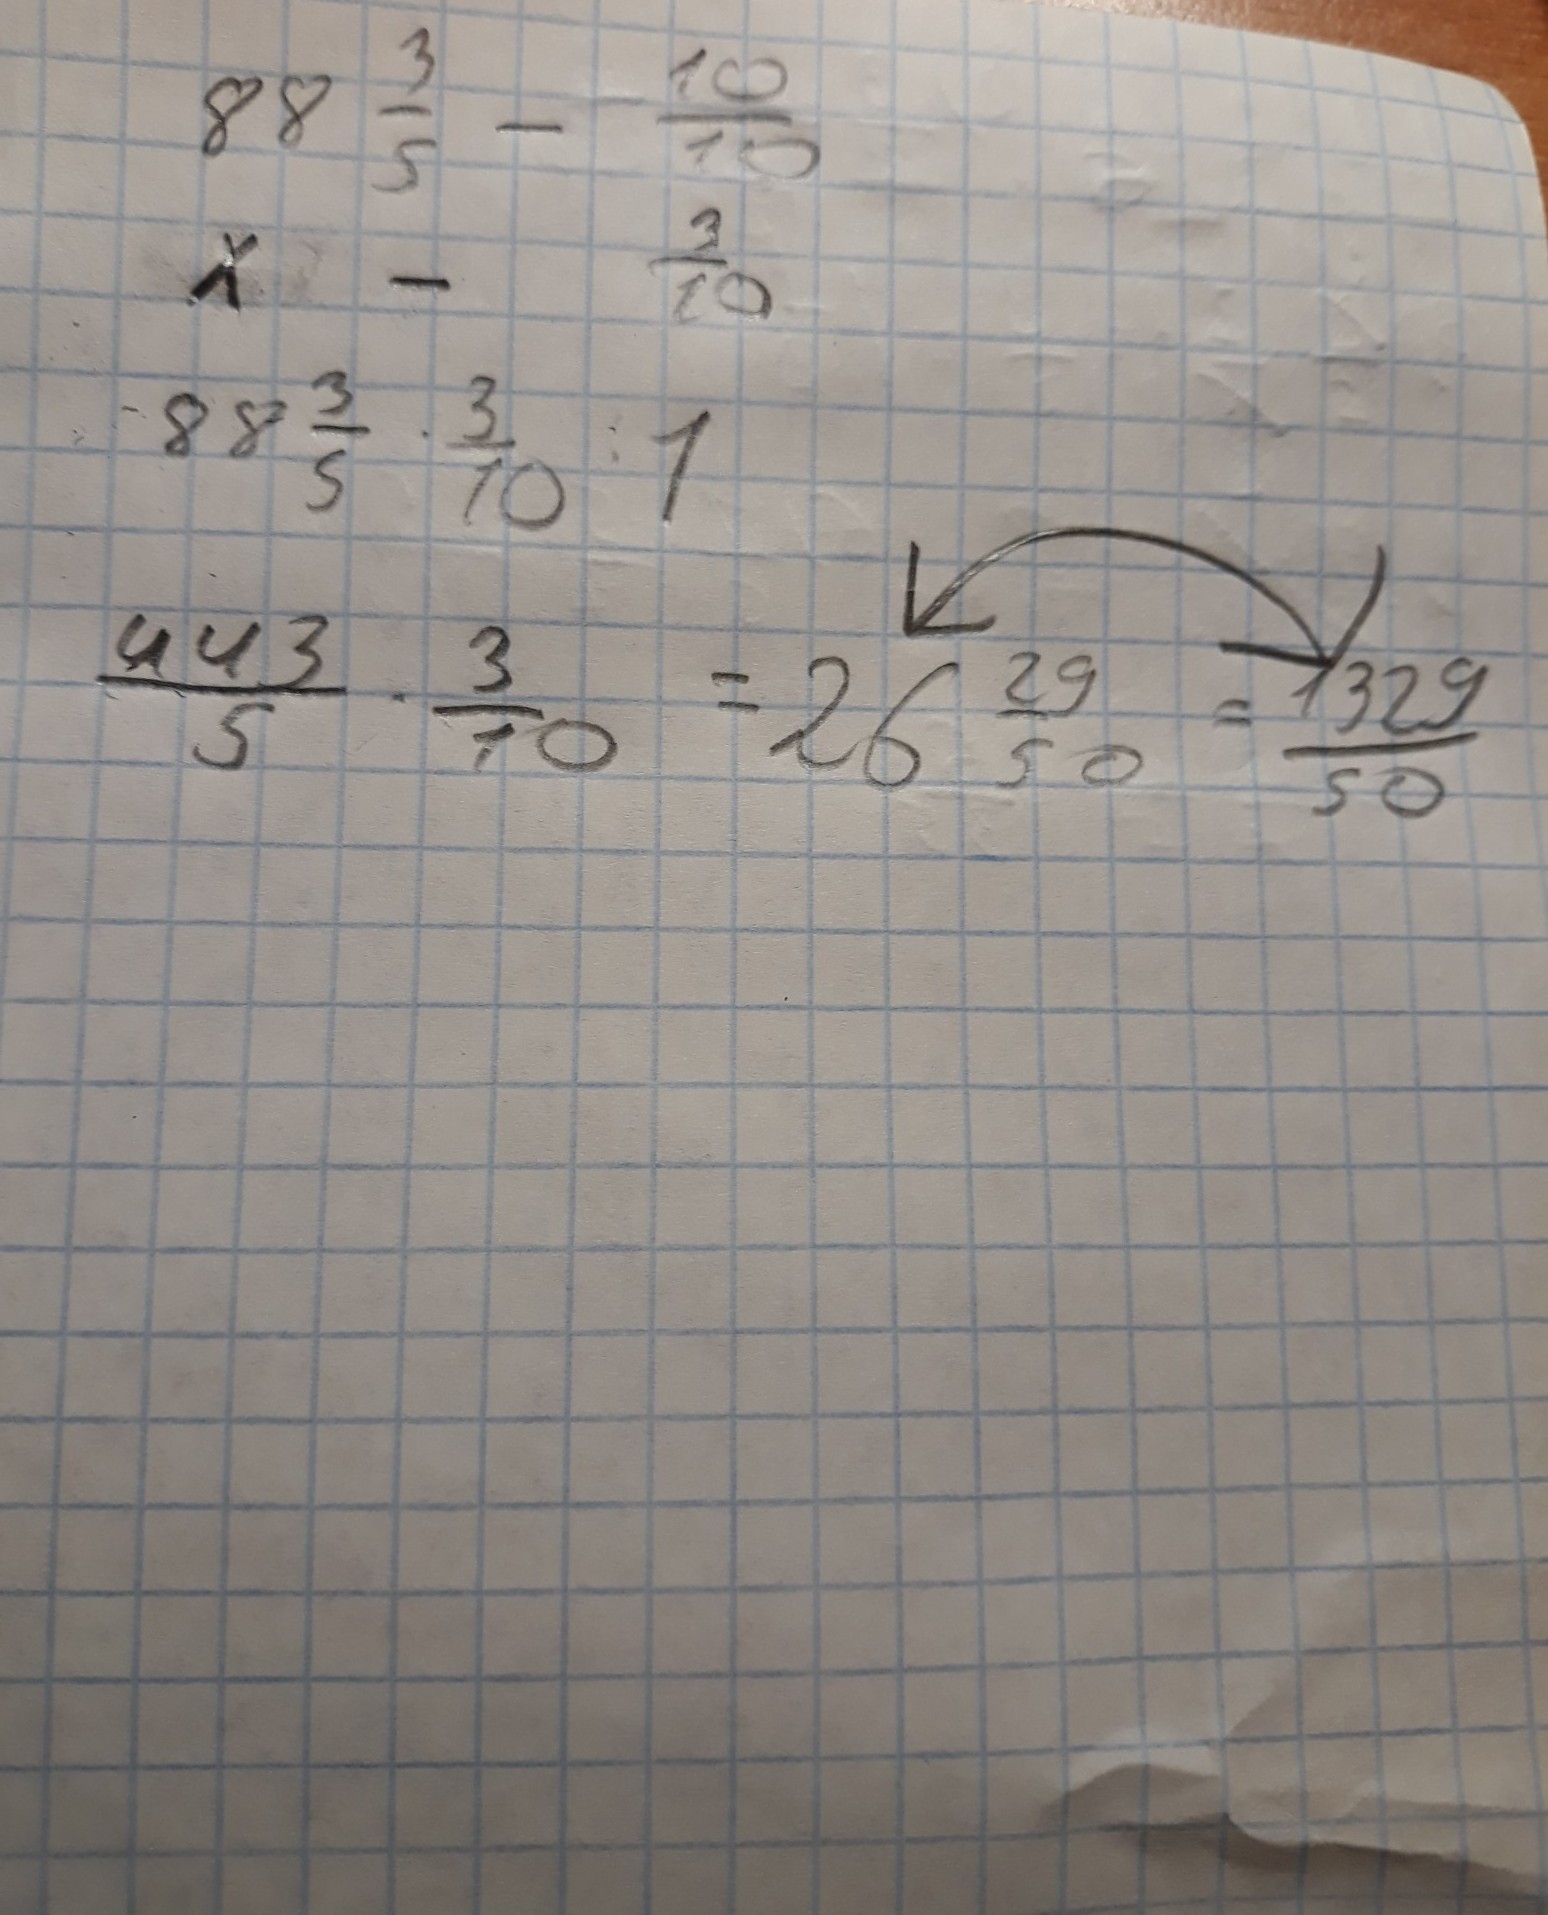 88 3/5 — 10/10
x — 3/10
88 3/5 · 3/10 : 1
443/5 · 3/10 = 26 29/50 = 1329/50